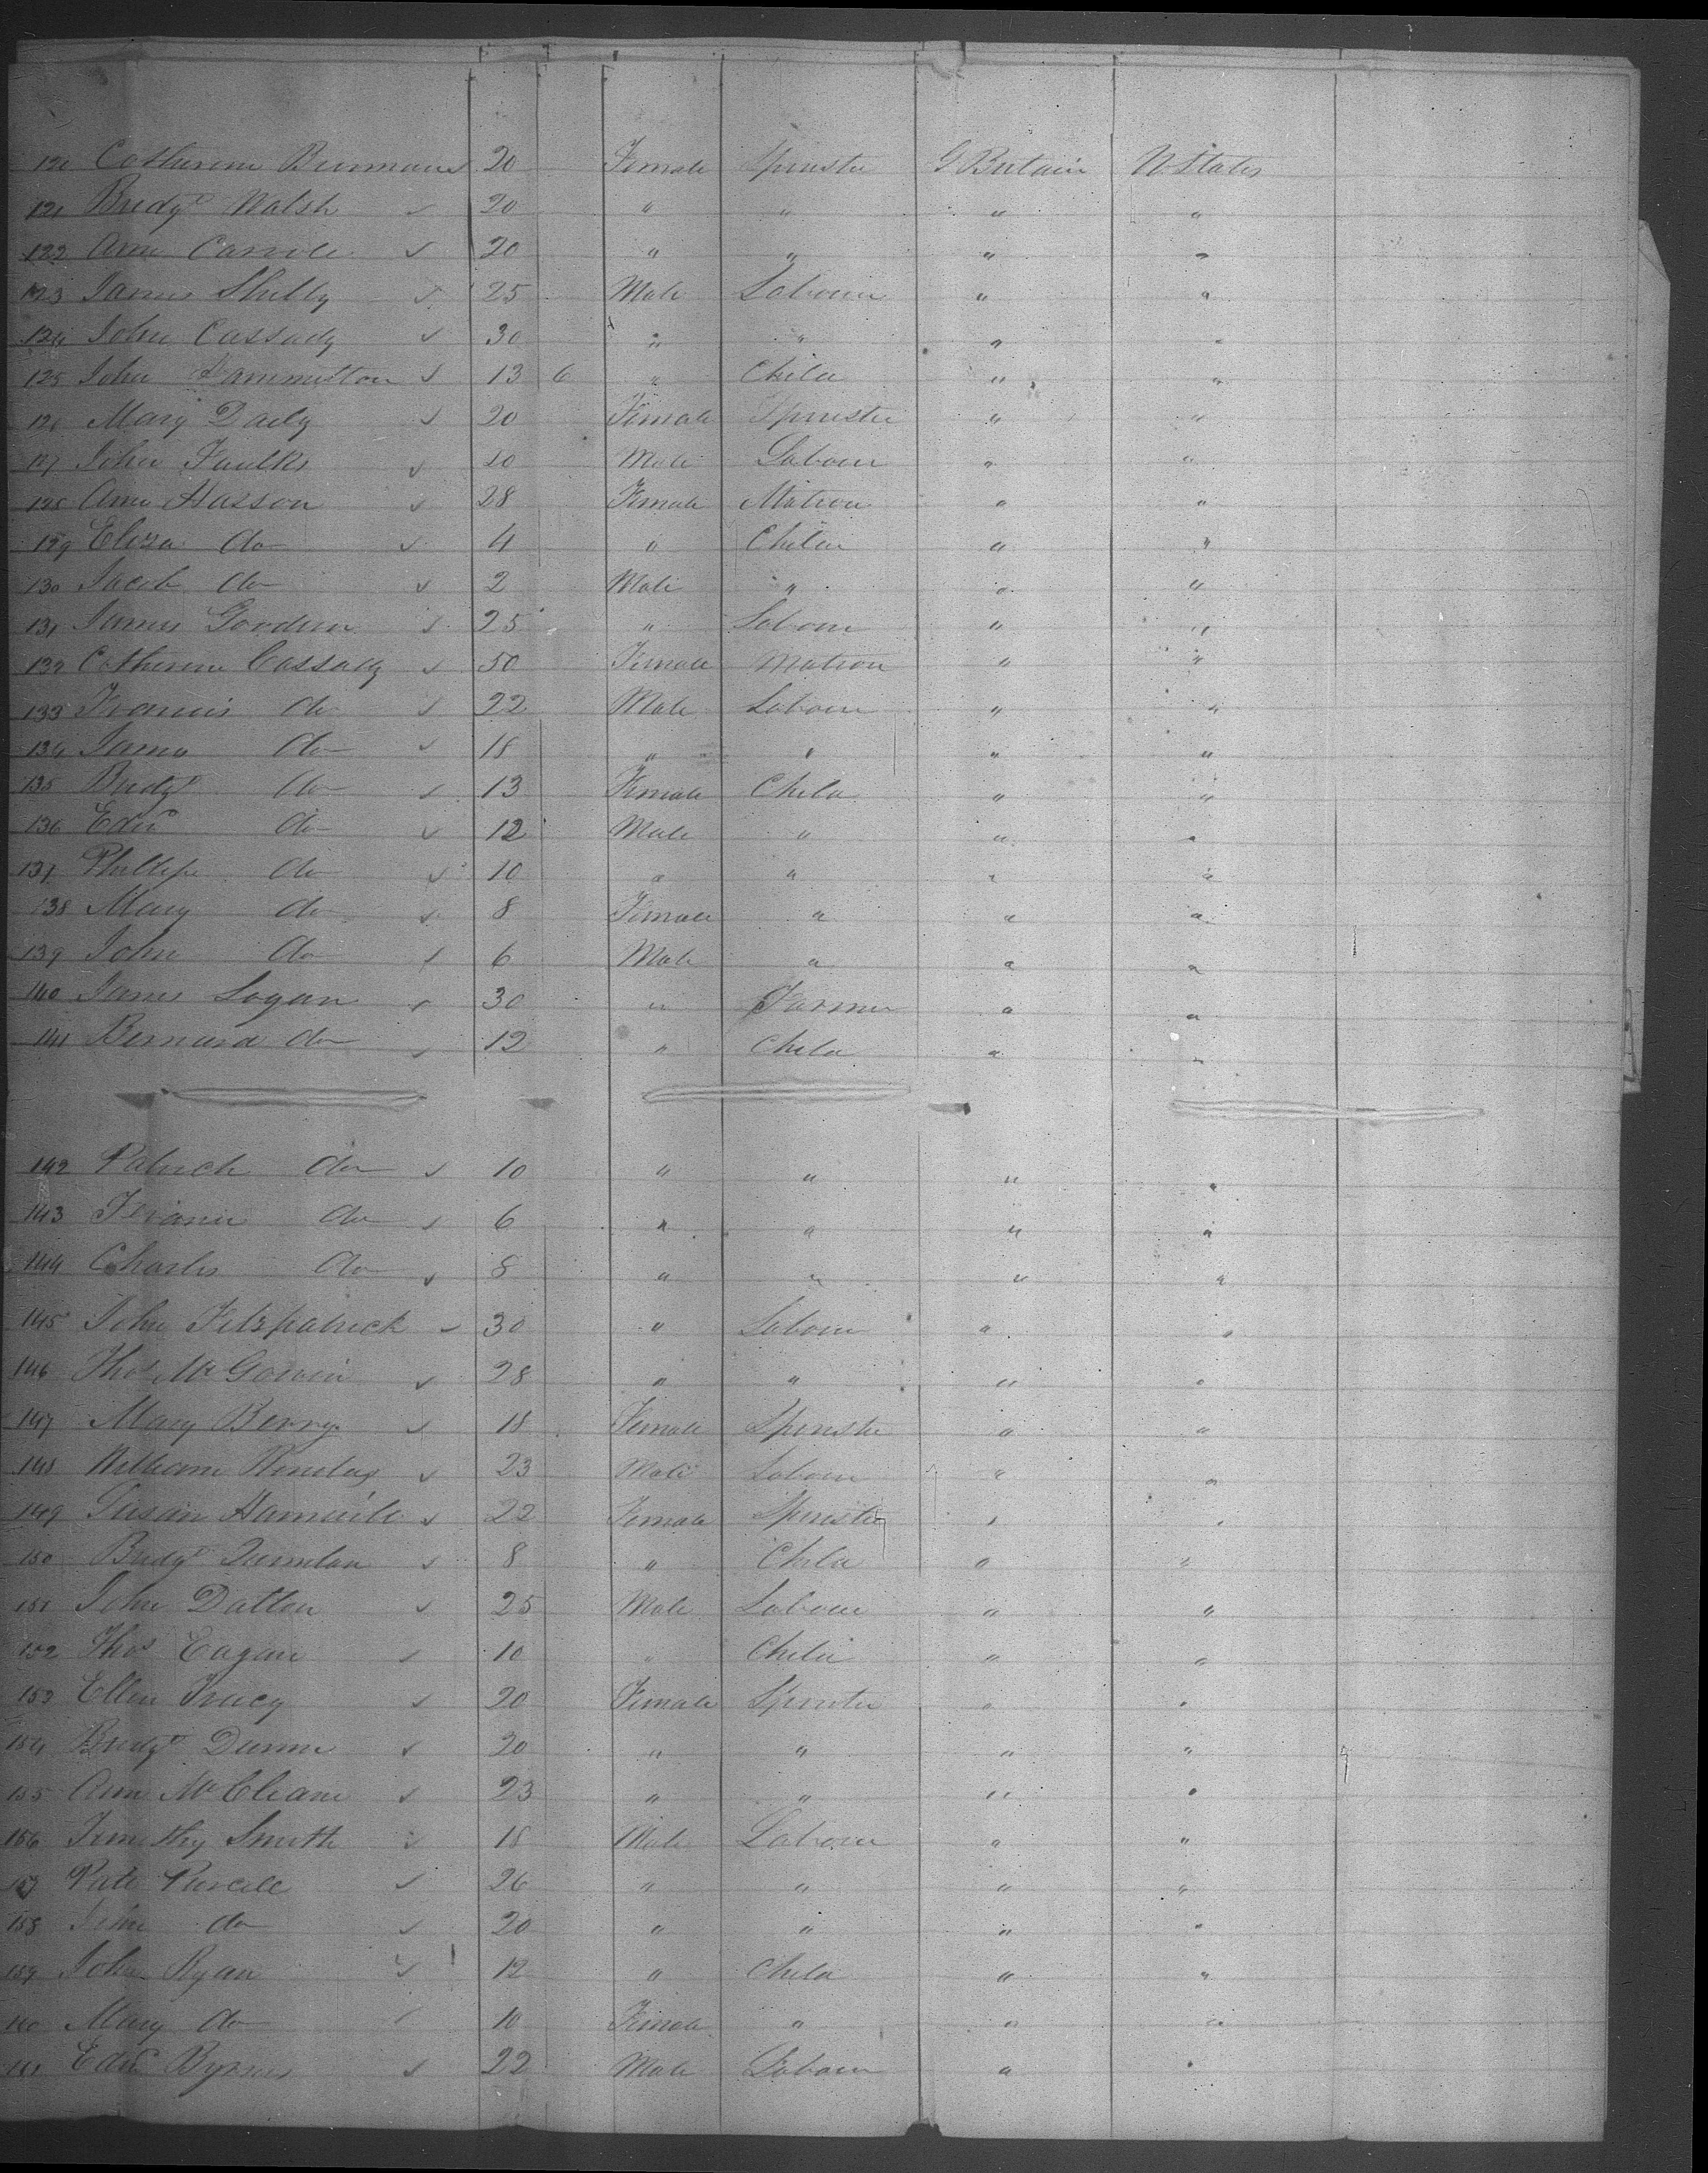 120 Catherine 20 Female Spinster G Britain U. States
121 Bridgt Walsh 20 " " " "
122 Ann Carrole 20 " " " "
123 James Shelly 25 Male Labour " "
124 John Cassady 30 " " " "
125 John Hammilton 13 6 " Child " "
126 Mary Daily 20 Female Spinster " "
127 John Faulks 20 Male Labour " "
128 Ann Hasson 28 Female Matron " "
129 Eliza do 4 " Child " "
130 Jacob do 2 Male " " "
131 James 25 " Labour " "
132 Catherine Cassady 50 Female Matron " "
133 Francis do 22 Male Labour " "
134 James do 18 " " " "
135 Bridgt do 13 Female Child " "
136 Edwd do 12 Male " " "
137 Phillip do 10 " " " "
138 Mary do 8 Female " " "
139 John do 6 Male " " "
140 James Logan 30 " Farmer " "
141 Bernard do 12 " Child " "
142 Patrick do 10 " " " "
143 Francis do 6 " " " "
144 Charles do 8 " " " "
145 John Fitzpatrick 30 " Labour " "
146 Thos 28 " " " "
147 Mary Berry 18 Female Spinster " "
148 William 23 Male Labour " "
149 Susan 22 Female Spinster " "
150 Bridgt Quinlan 8 " Child " "
151 John Dalton 25 Male Labour " "
152 Thos Eagan 10 " Child " "
153 Ellen Tracy 20 Female Spinster " "
154 Bridgt Dunne 20 " " " "
155 Ann McCleane 23 " " " "
156 Timothy Smith 18 Male Labour " "
157 Pate Purcell 26 " " " "
158 John do 20 " " " "
159 John Ryan 12 " Child " "
160 Mary do 10 Female " " "
161 Edwd Byrnes 22 Male Labour " "